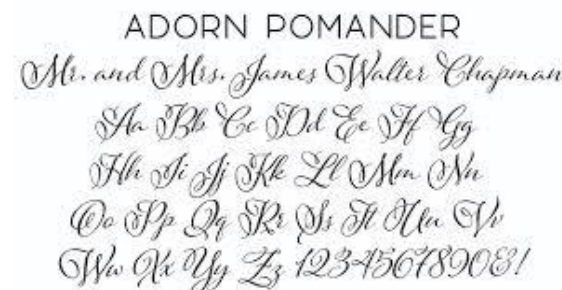 ADORN POMANDER
Mr. and Mrs. James Walter Chapman
Aa Bb Cc Dd Ee Ff Gg
Hh Ii Jj Kk Ll Mm Nn
Oo Pp Qq Rr Ss Tt Uu Vv
Ww Xx Yy Zz 1234567890&!